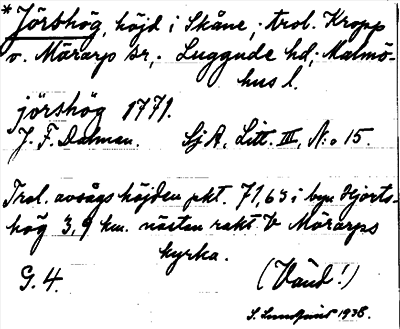 * Jörshög, höjd i Skåne, trol. Kropp
o. Mörarp sr, Luggude hd, Malmö-
hus l.
jörshög 1771.
J. F. Dalman. SjA. Litt. III, N:o 15.
Trol. avsågs höjden pkt. 71,63 i byn Hjorts-
hög 3,9 km. nästan rakt V Mörarps
kyrka.
G. 4. (Vänd!)
S. Lundquist 1938.